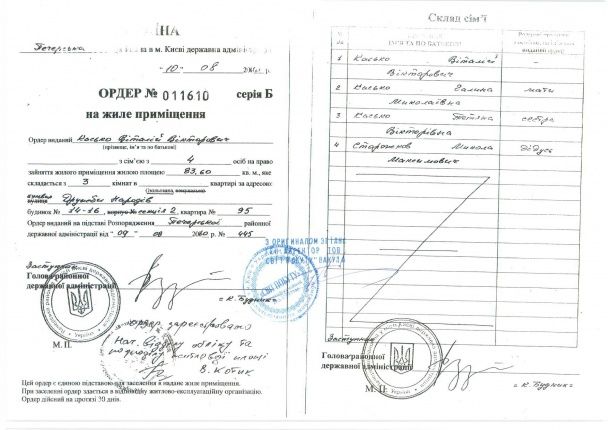 Печерська
на в м. Києві державна адмін
"10" 08
ОРДЕР № 011610 серія Б
на жиле приміщення
Ордер виданий Косько Віталій Вікторович
(прізвище, ім'я та по батькові)
з сім'єю з 4 осіб на право
зайняття жилого приміщення жилою площею 83,60 кв. м, яке
складається з 3 кімнат в квартирі за адресою:
Дружби Народів
будинок № 14-16, корпус № секція 2 квартира № 95
Ордер виданий на підставі Розпорядження Печерської районної
державної адміністрації від "09" 08 р. № 445
Заступник
Голова районної
державної адміністрації
К. Будник
М. П.
ордер зареєстровано
Нач. відділу обліку та
розподілу житлової площі
В. Котик
Цей ордер є єдиною підставою для заселення в надане жиле приміщення.
При заселенні ордер здається в відповідну житлово-експлуатаційну організацію.
Ордер дійсний на протязі 30 днів.
З ОРИГІНАЛОМ ЗГІДНО
ДИРЕКТОР ТОВ
Склад сім'ї
ІМ'Я ТА ПО БАТЬКОВІ
1 Косько Віталій Вікторович –
2 Косько Галина Миколаївна мати
3 Косько Тетяна Вікторівна сестра
4 Микола Максимович дідусь
Заступник
Голова районної
державної адміністрації
К. Будник
М. П.